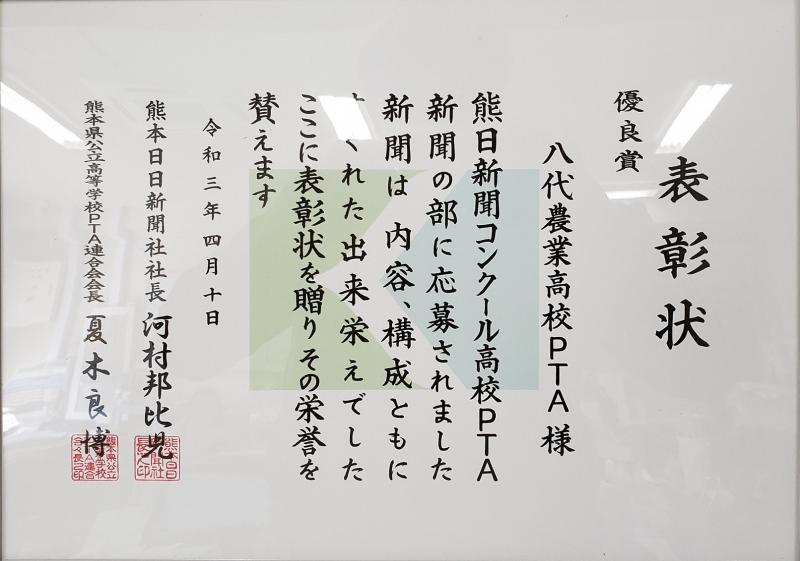 表彰状
優良賞
八代農業高校PTA様
熊日新聞コンクール高校PTA
新聞の部に応募されました
新聞は 内容、構成ともに
くれた出来栄えでした
ここに表彰状を贈りその栄誉を
賛えます
令和三年四月十日
熊本日日新聞社社長 河村邦比児
熊本県公立高等学校PTA連合会会長 夏木良博